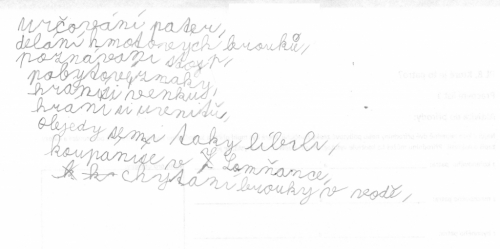 Určování pater,
dělání hmotových brouků,
poznávání stop,
pobytové znaky,
hraní si venku,
hraní si uvnitř,
obědy se mi taky líbili,
koupání se v Lomňance,
chytání brouky v vodě,